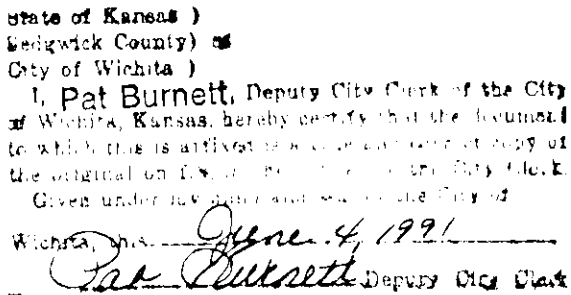 State of Kansas )
Sedgwick County)
City of Wichita )
I, Pat Burnett, Deputy City Clerk of the City
of Wichita, Kansas, hereby certify that the document
to which this is affixed is a copy of
the original on the City Clerk.
Given under my and the City of
Wichita, this June 4, 1991
Pat Burnett Deputy City Clerk